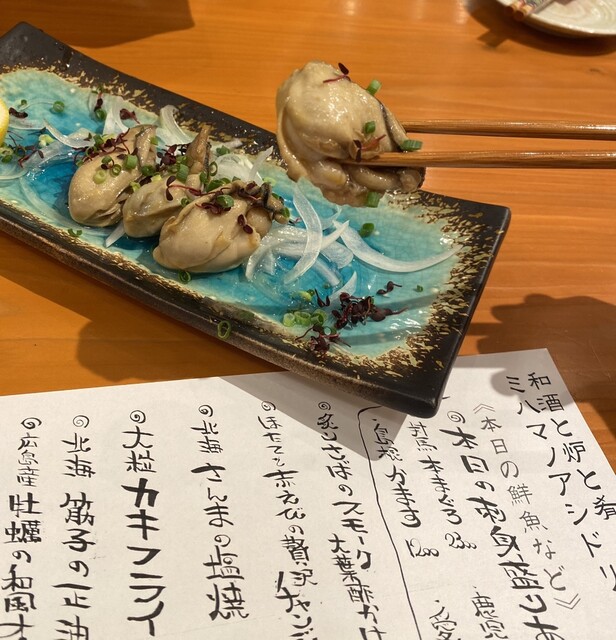 和酒と炉と肴
ミハマノアシドリ
《本日の鮮魚など》
本日のお刺身盛り
対馬 本まぐろ
島根 かます
炙りさばのスモーク
大葉酢かけ
ほたてと赤えびの贅沢
北海 さんまの塩焼
大粒カキフライ
北海 筋子の正油
広島産 牡蠣の和風オ